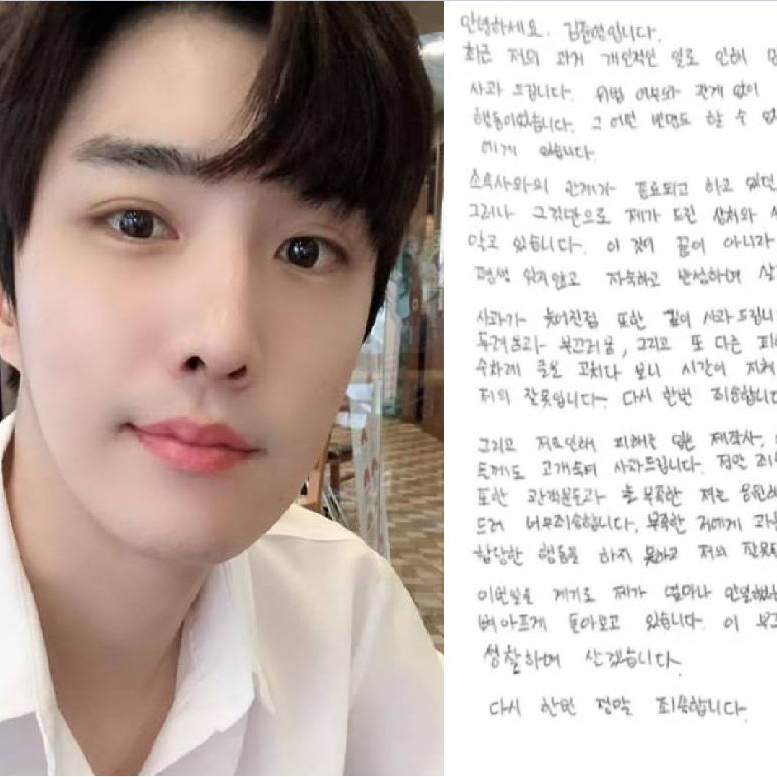 안녕하세요. 김준영입니다.
최근 저의 과거 개인적인 일로 인해
사과 드립니다. 위법 여부와 관계 없이
행동이었습니다. 그 어떤 변명도 할 수
에게 있습니다.
소속사와의 관계가 종료되고 하고 있던
그러나 그것만으로 제가 드린 상처와
알고 있습니다. 이 것이 끝이 아니라
평생 잊지않고 자숙하고 반성하며
사과가 늦어진점 또한 깊이 사과드립니
두려움과 부끄러움, 그리고 또 다른
수차례 글을 고치다 보니 시간이
저의 잘못입니다. 다시 한번 죄송합니다
그리고 저로인해 피해를 입은 제작사,
들께도 고개숙여 사과드립니다. 정말
또한 관객분들과 늘 부족한 저를
드려 너무죄송합니다. 부족한 저에게
합당한 행동을 하지 못하고 저의
이번일을 계기로 제가 얼마나
뼈아프게 돌아보고 있습니다. 이
성찰하며 살겠습니다.
다시 한번 정말 죄송합니다.